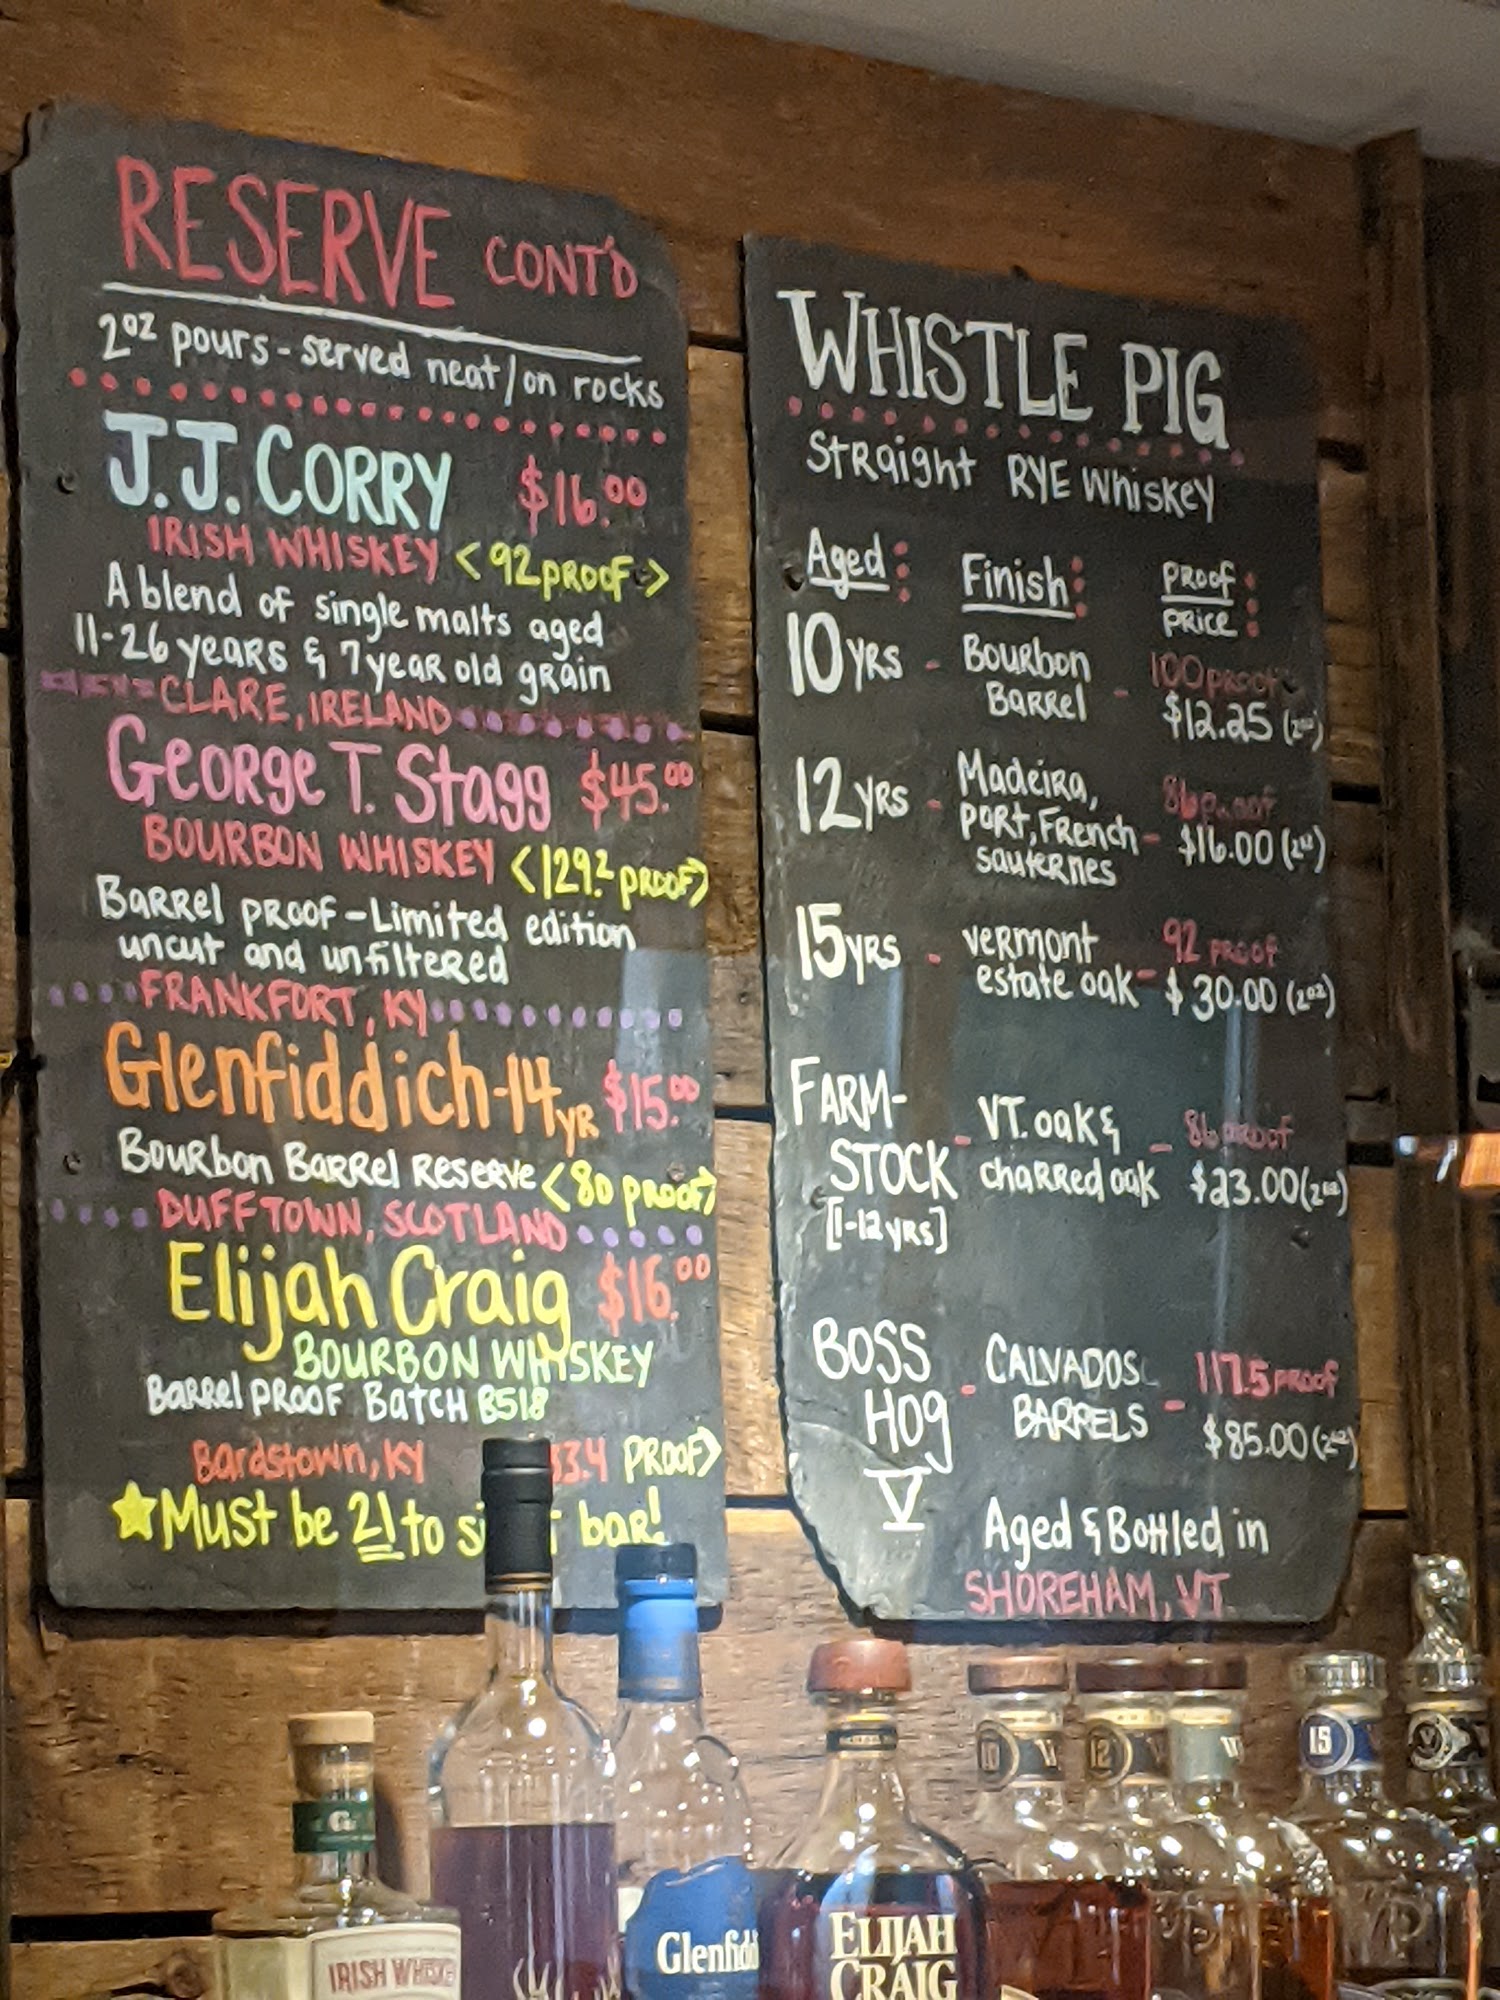 RESERVE CONT'D
2oz pours - served neat/on rocks
J.J. CORRY $16.00
IRISH WHISKEY <92 PROOF>
A blend of single malts aged
11-26 years & 7 year old grain
CLARE, IRELAND
George T. Stagg $45.00
BOURBON WHISKEY <129.2 PROOF>
Barrel proof - Limited edition
uncut and unfiltered
FRANKFORT, KY
Glenfiddich-14YR $15.00
Bourbon Barrel Reserve <80 proof>
DUFFTOWN, SCOTLAND
Elijah Craig $16.00
BOURBON WHISKEY
Barrel proof Batch B518
Bardstown, KY 33.4 PROOF>
Must be 21 to bar!
WHISTLE PIG
Straight RYE Whiskey
Aged: Finish: PROOF:
PRICE:
10 YRS - Bourbon Barrel - 100 proof
$12.25 (2oz)
12 YRS - Madeira, port, French sauternes - 86 proof
$16.00 (2oz)
15 YRS - vermont estate oak - 92 PROOF
$30.00 (2oz)
FARM-STOCK [1-12 YRS] - VT. oak & charred oak - 86 PROOF
$23.00 (2oz)
BOSS HOG V - CALVADOS BARRELS - 117.5 PROOF
$85.00 (2oz)
Aged & Bottled in
SHOREHAM, VT
10
12
15
V
IRISH WHISKE
Glenfiddi
ELIJAH
CRAIG